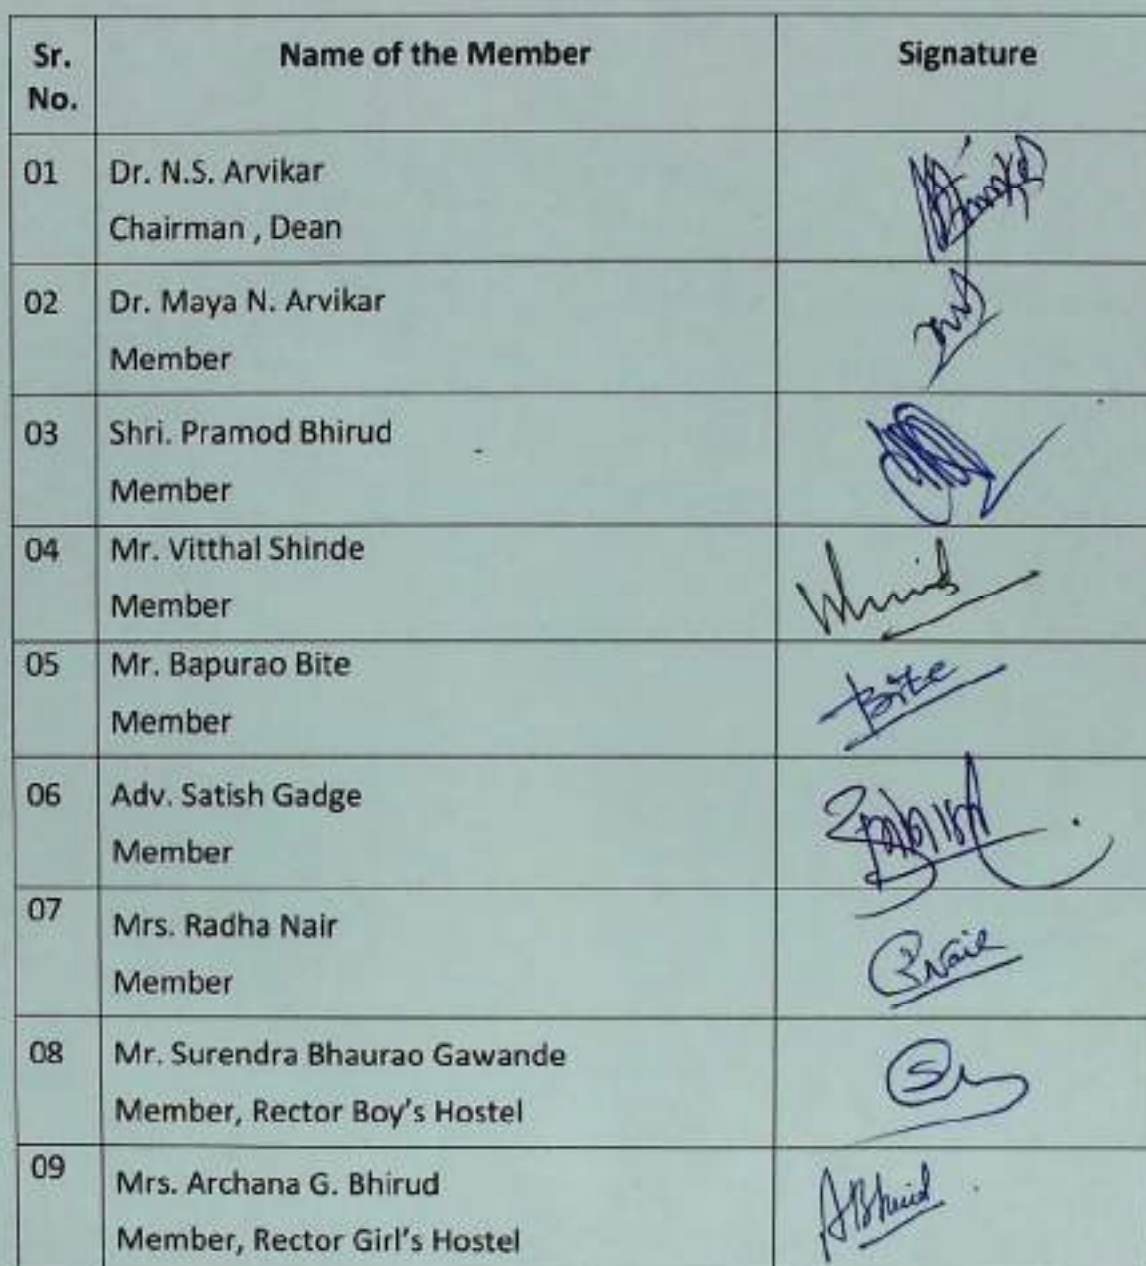 Sr. No. Name of the Member Signature
01 Dr. N.S. Arvikar
Chairman , Dean
02 Dr. Maya N. Arvikar
Member
03 Shri. Pramod Bhirud
Member
04 Mr. Vitthal Shinde
Member
05 Mr. Bapurao Bite Bite
Member
06 Adv. Satish Gadge
Member
07 Mrs. Radha Nair RNair
Member
08 Mr. Surendra Bhaurao Gawande
Member, Rector Boy's Hostel
09 Mrs. Archana G. Bhirud ABhirud
Member, Rector Girl's Hostel